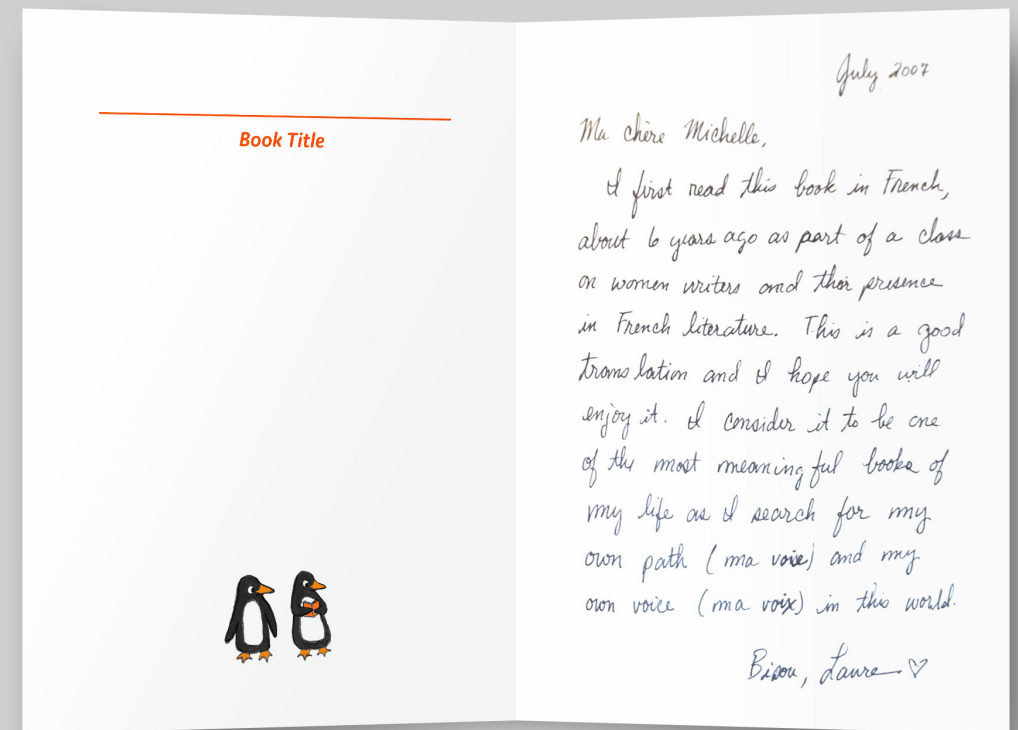 Book Title
July 2007
Ma chère Michelle,
I first read this book in French,
about 6 years ago as part of a class
on women writers and their presence
in French literature. This is a good
translation and I hope you will
enjoy it. I consider it to be one
of the most meaningful books of
my life as I search for my
own path (ma voie) and my
own voice (ma voix) in this world.
Bisou, Laure ♡